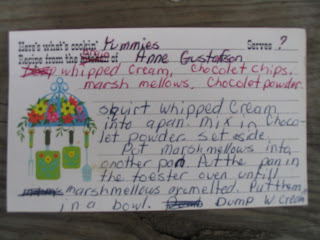 Here's what's cookin' Yummies Serves ?
Recipe from the kitchen of Anne Gustafson
whipped cream, chocolet chips,
marsh mellows, chocolet powder.
squirt whipped cream
into a pan. mix in choco-
let powder. set aside.
Put marshmellows into
another pan. Put the pan in
the toester oven untill
marshmellows are melted. Put them
in a bowl. Dump W. cream